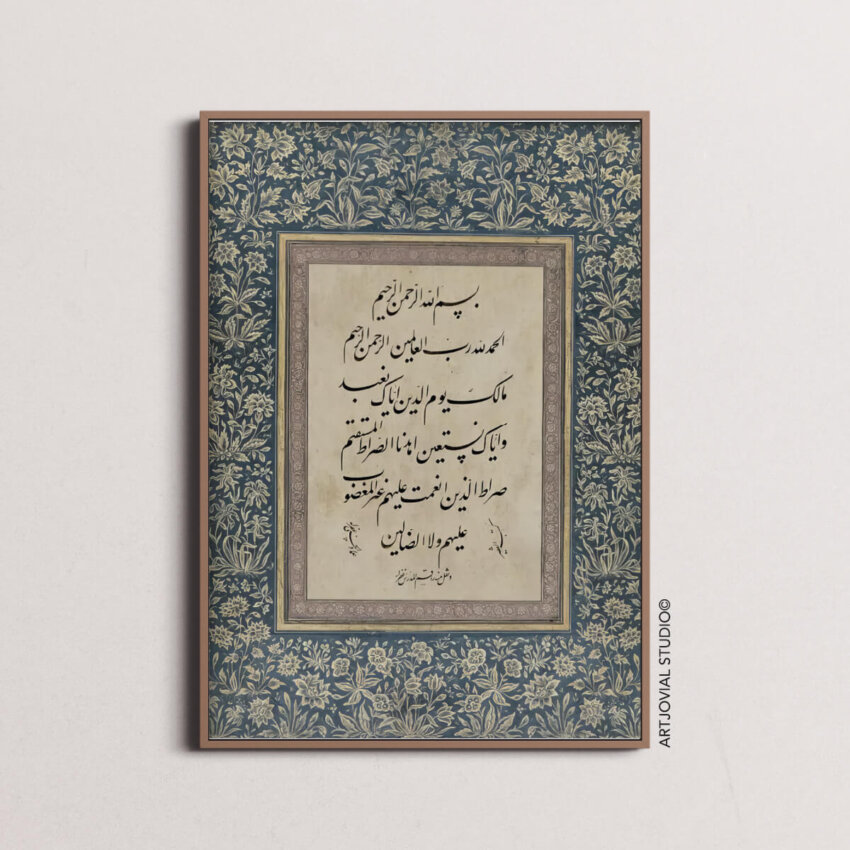 بسم الله الرحمن الرحيم
الحمد لله رب العالمين الرحمن الرحيم
مالك يوم الدين اياك نعبد
واياك نستعين اهدنا الصراط المستقيم
صراط الذين انعمت عليهم غير المغضوب
عليهم ولا الضالين
ARTJOVIAL STUDIO©